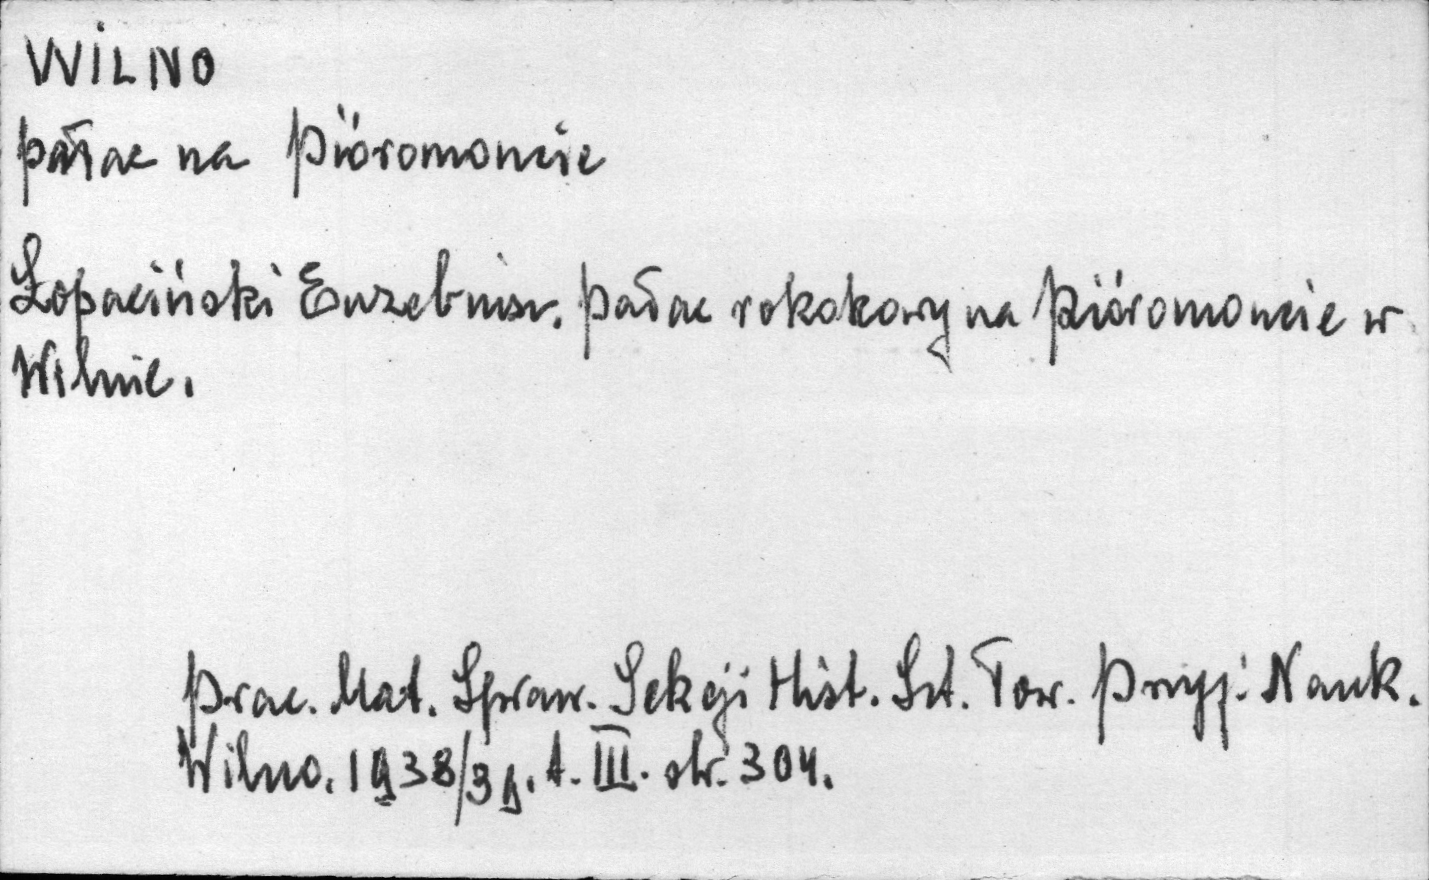 WILNO
pałac na Pióromoncie
Łopaciński Euzebiusz. Pałac rokokowy na Pióromoncie w
Wilnie.
Prac. Mat. Spraw. Sekcji Hist. Szt. Tow. Przyj. Nauk.
Wilno. 1938/39. t. III. str. 304.